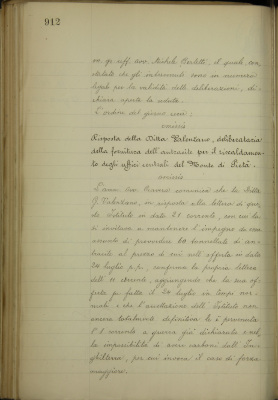 912
on. gr. uff. avv. Michele Carlotti, il quale con-
statato che gli intervenuti sono in numero
legale per la validità della deliberazione, di-
chiara aperta la seduta.
L'ordine del giorno reca:
omissis
Risposta della Ditta Valenzano, deliberataria
della fornitura dell'antracite per il riscaldamen-
to degli uffici centrali del Monte di Pietà.
omissis
L'anno. avv. comunica che la Ditta
G. Valenzano, in risposta alla lettera di que-
sto Istituto in data 21 corrente, con cui la
si invitava a mantenere l'impegno da essa
assunto di provvedere 60 tonnellate di an-
tracite al prezzo di cui nell'offerta in data
20 luglio p.p., conferma la propria lettera
dell'11 corrente, aggiungendo che la sua of-
ferta fu fatta il 20 luglio in tempi nor-
mali e che l'accettazione dell'Istituto non
ancora totalmente definitiva le è pervenuta
l'8 corrente a guerra già dichiarata e nel-
la impossibilità di avere carboni dall'In-
ghilterra, per cui invoca il caso di forza
maggiore.